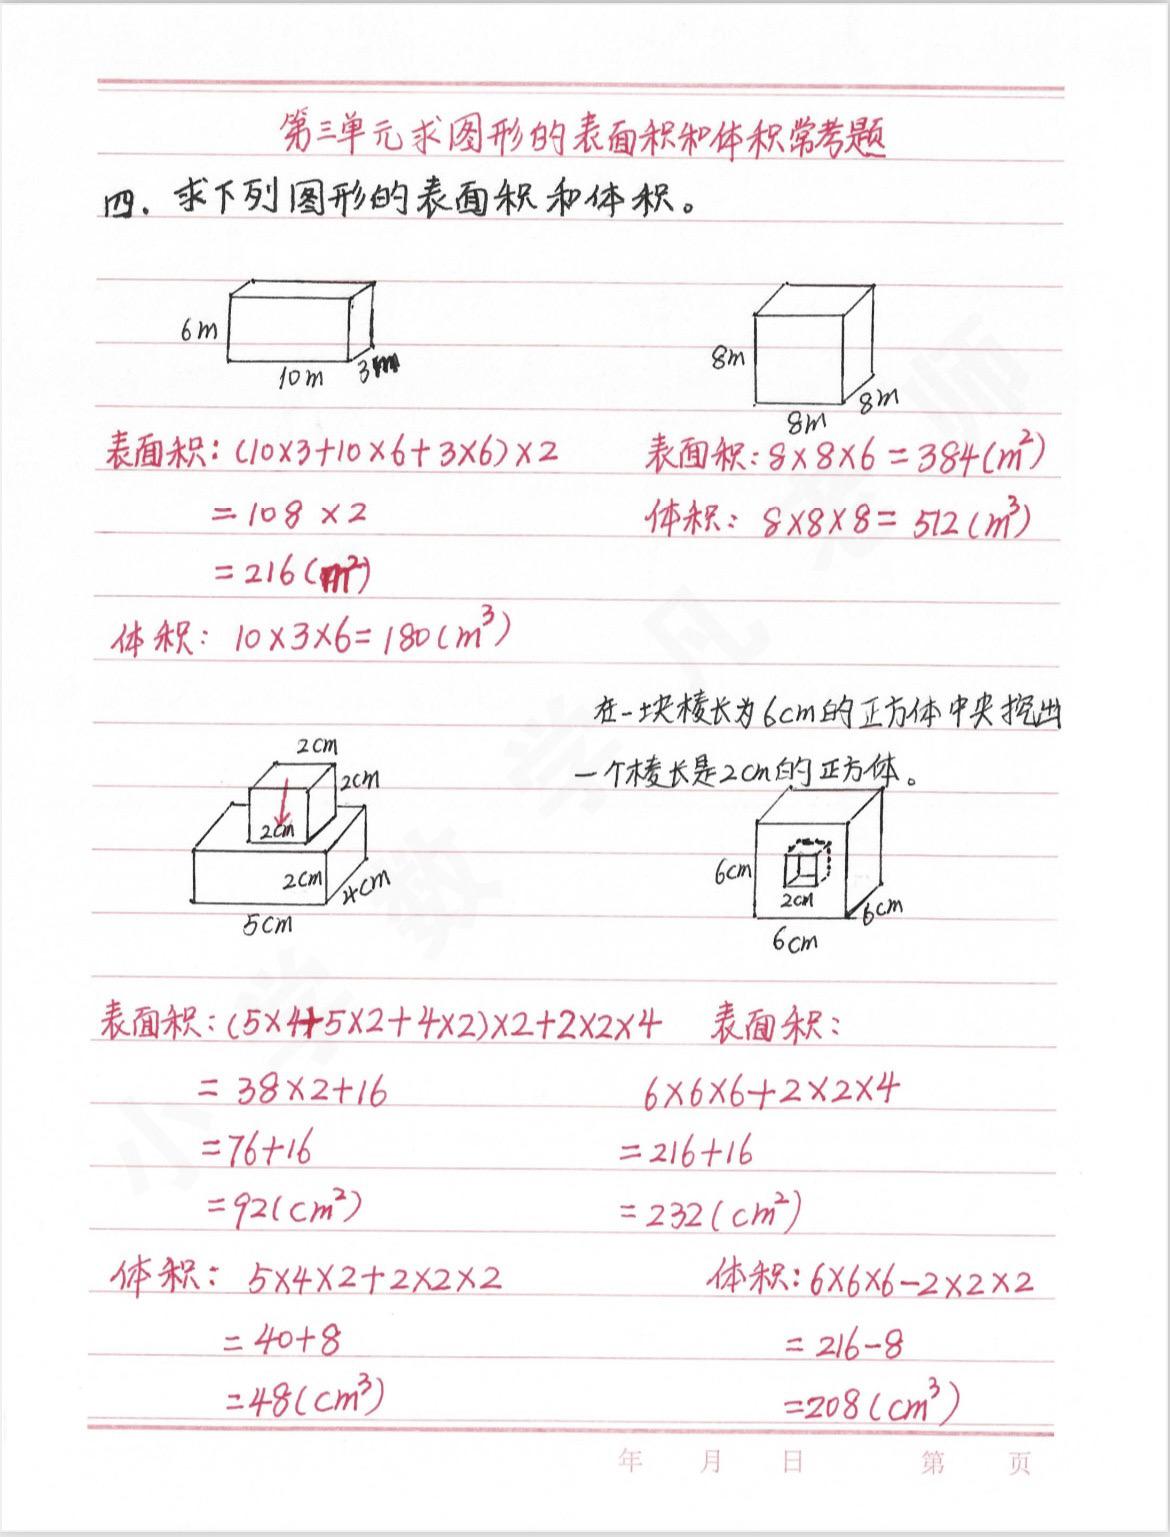 第三单元求图形的表面积和体积常考题
四. 求下列图形的表面积和体积。
6m
10m
3m
8m
8m
8m
表面积: (10×3+10×6+3×6)×2
=108×2
=216(m²)
体积: 10×3×6=180(m³)
表面积: 8×8×6=384(m²)
体积: 8×8×8=512(m³)
2cm
2cm
2cm
2cm
4cm
5cm
在一块棱长为6cm的正方体中央挖出
一个棱长是2cm的正方体。
6cm
2cm
6cm
6cm
表面积: (5×4+5×2+4×2)×2+2×2×4
=38×2+16
=76+16
=92(cm²)
体积: 5×4×2+2×2×2
=40+8
=48(cm³)
表面积:
6×6×6+2×2×4
=216+16
=232(cm²)
体积: 6×6×6-2×2×2
=216-8
=208(cm³)
年 月 日 第 页
小学数学凡老师